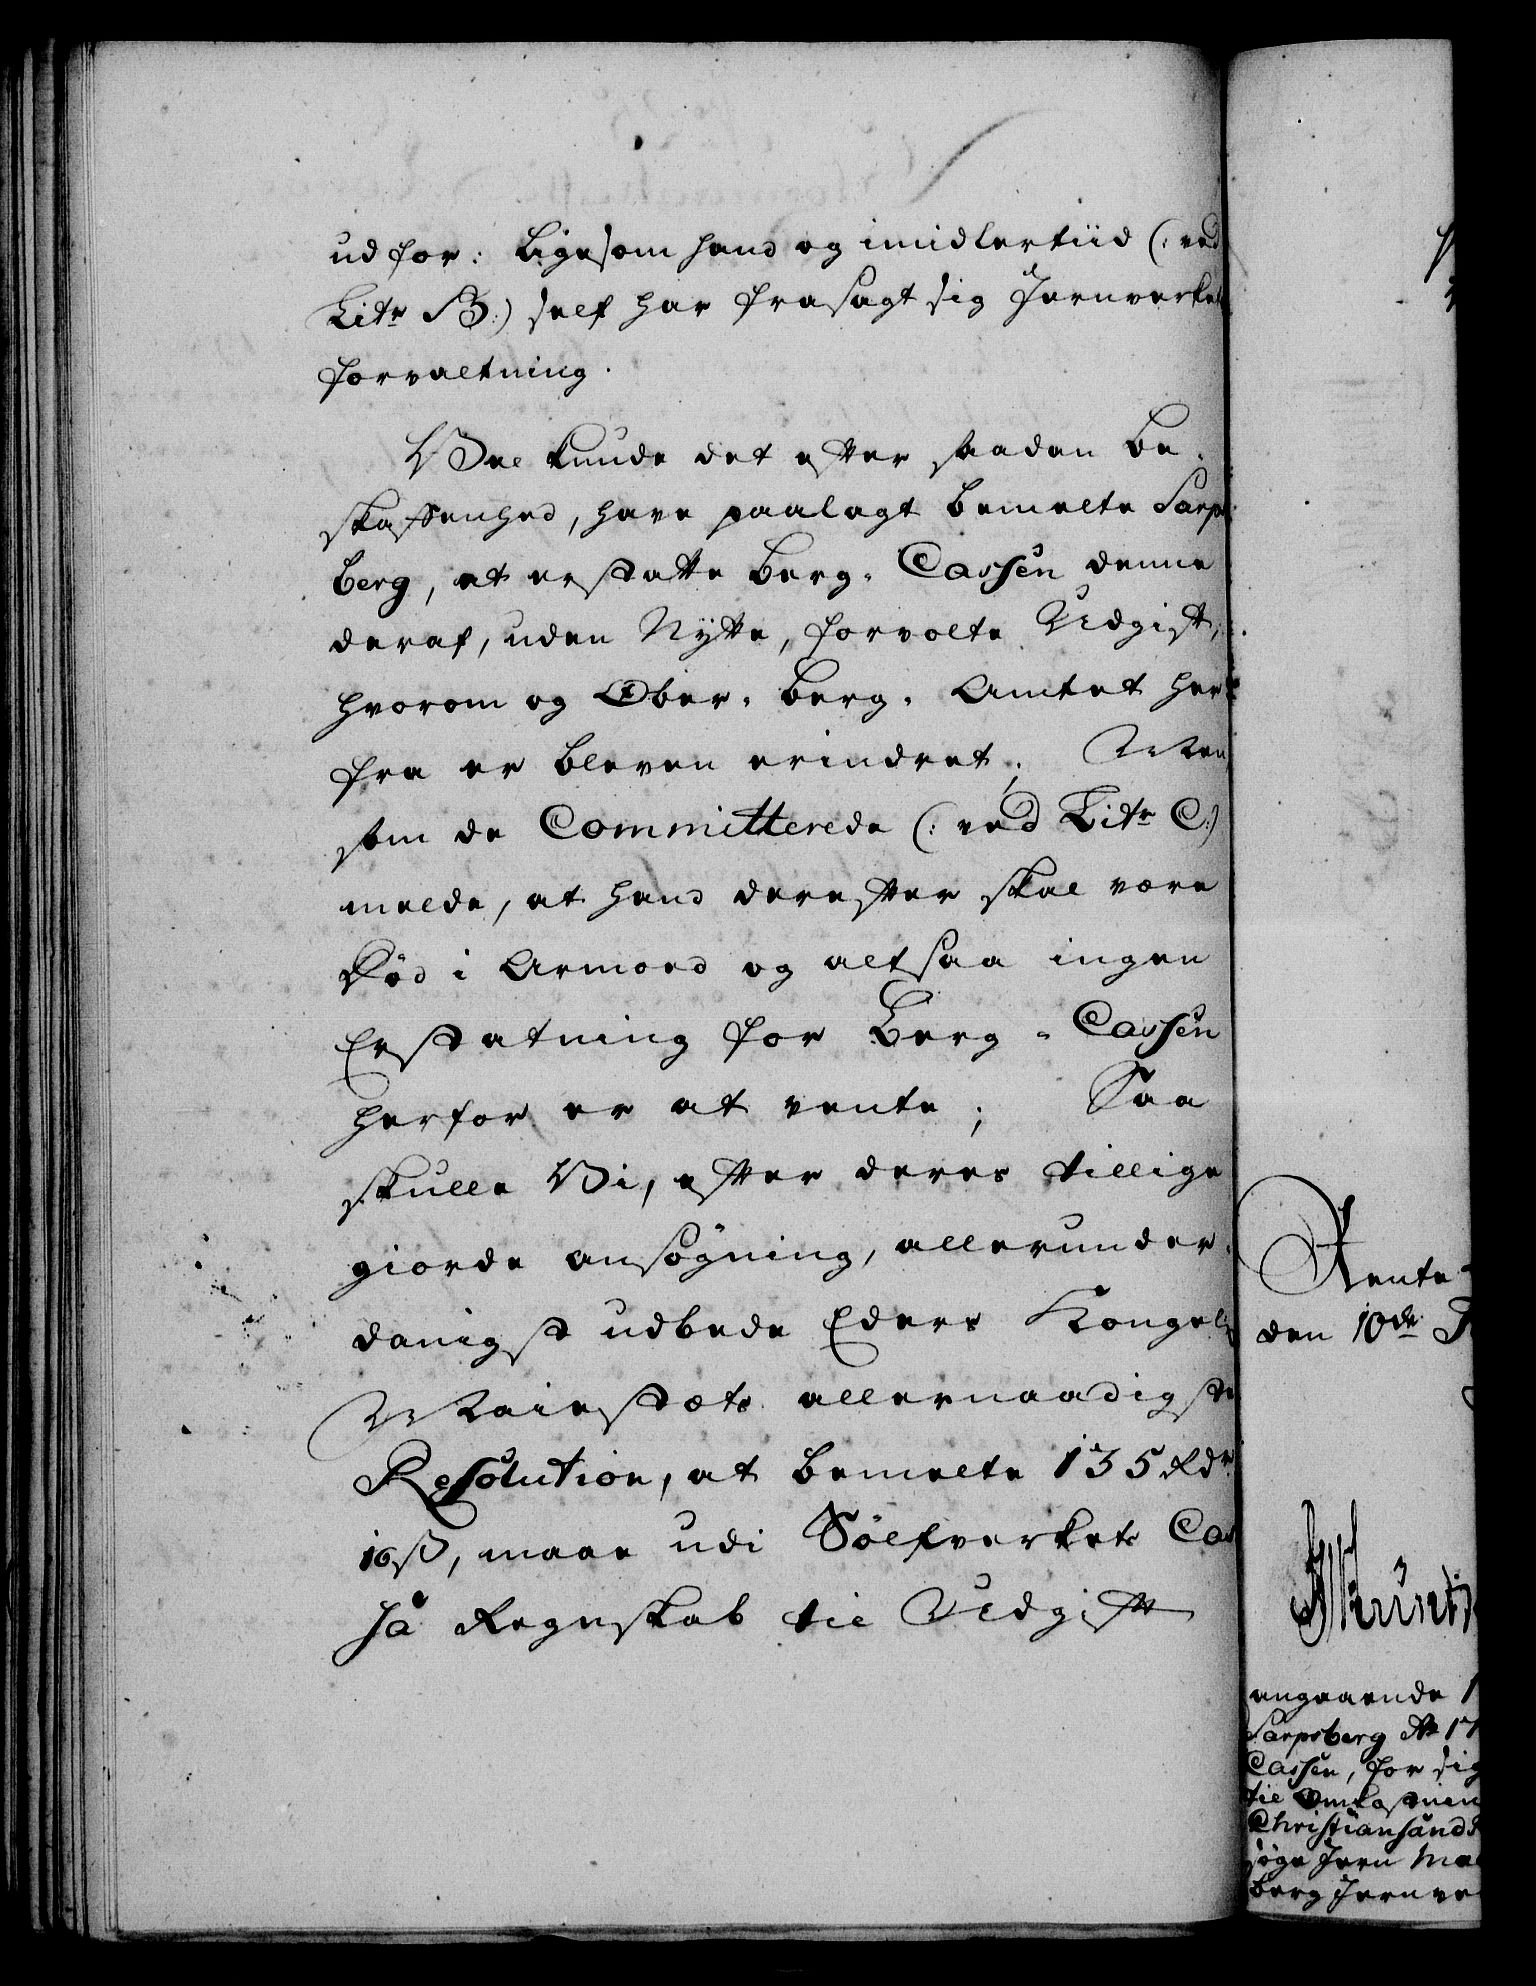 ud for: Ligesom hand og imidlertiid (: ved
Litr B:) self har frasagt sig Jernverkets
forvaltning.
Vel kunde det efter saadan be-
skaffenhed, have paalagt bemelte Sarps
berg, at erstatte Berg-Cassen denne
deraf, uden Nytte, forvolte Udgift;
hvorom og Ober-Berg-Amtet her
fra er bleven erindret; Men
som de Committerede (: ved Litr C:)
melde, at hand derefter skal være
død i Armoed og altsaa ingen
Erstatning for Berg-Cassen
herfor er at vente; Saa
skulle Vi, efter deres tillige
giorde ansøgning, allerunder-
danigst udbede Eders Kongel:
Maiestæts allernaadigste
Resolution, at bemelte 135 Rdr
16 ß, maae udi Sølfverkets Cas
sa Regnskab til Udgift
Rente
den 10de
angaaende
Sarpsberg Ao 17
Cassen, for sig
til
Christiansands
søge Jern Ma
berg Jernve